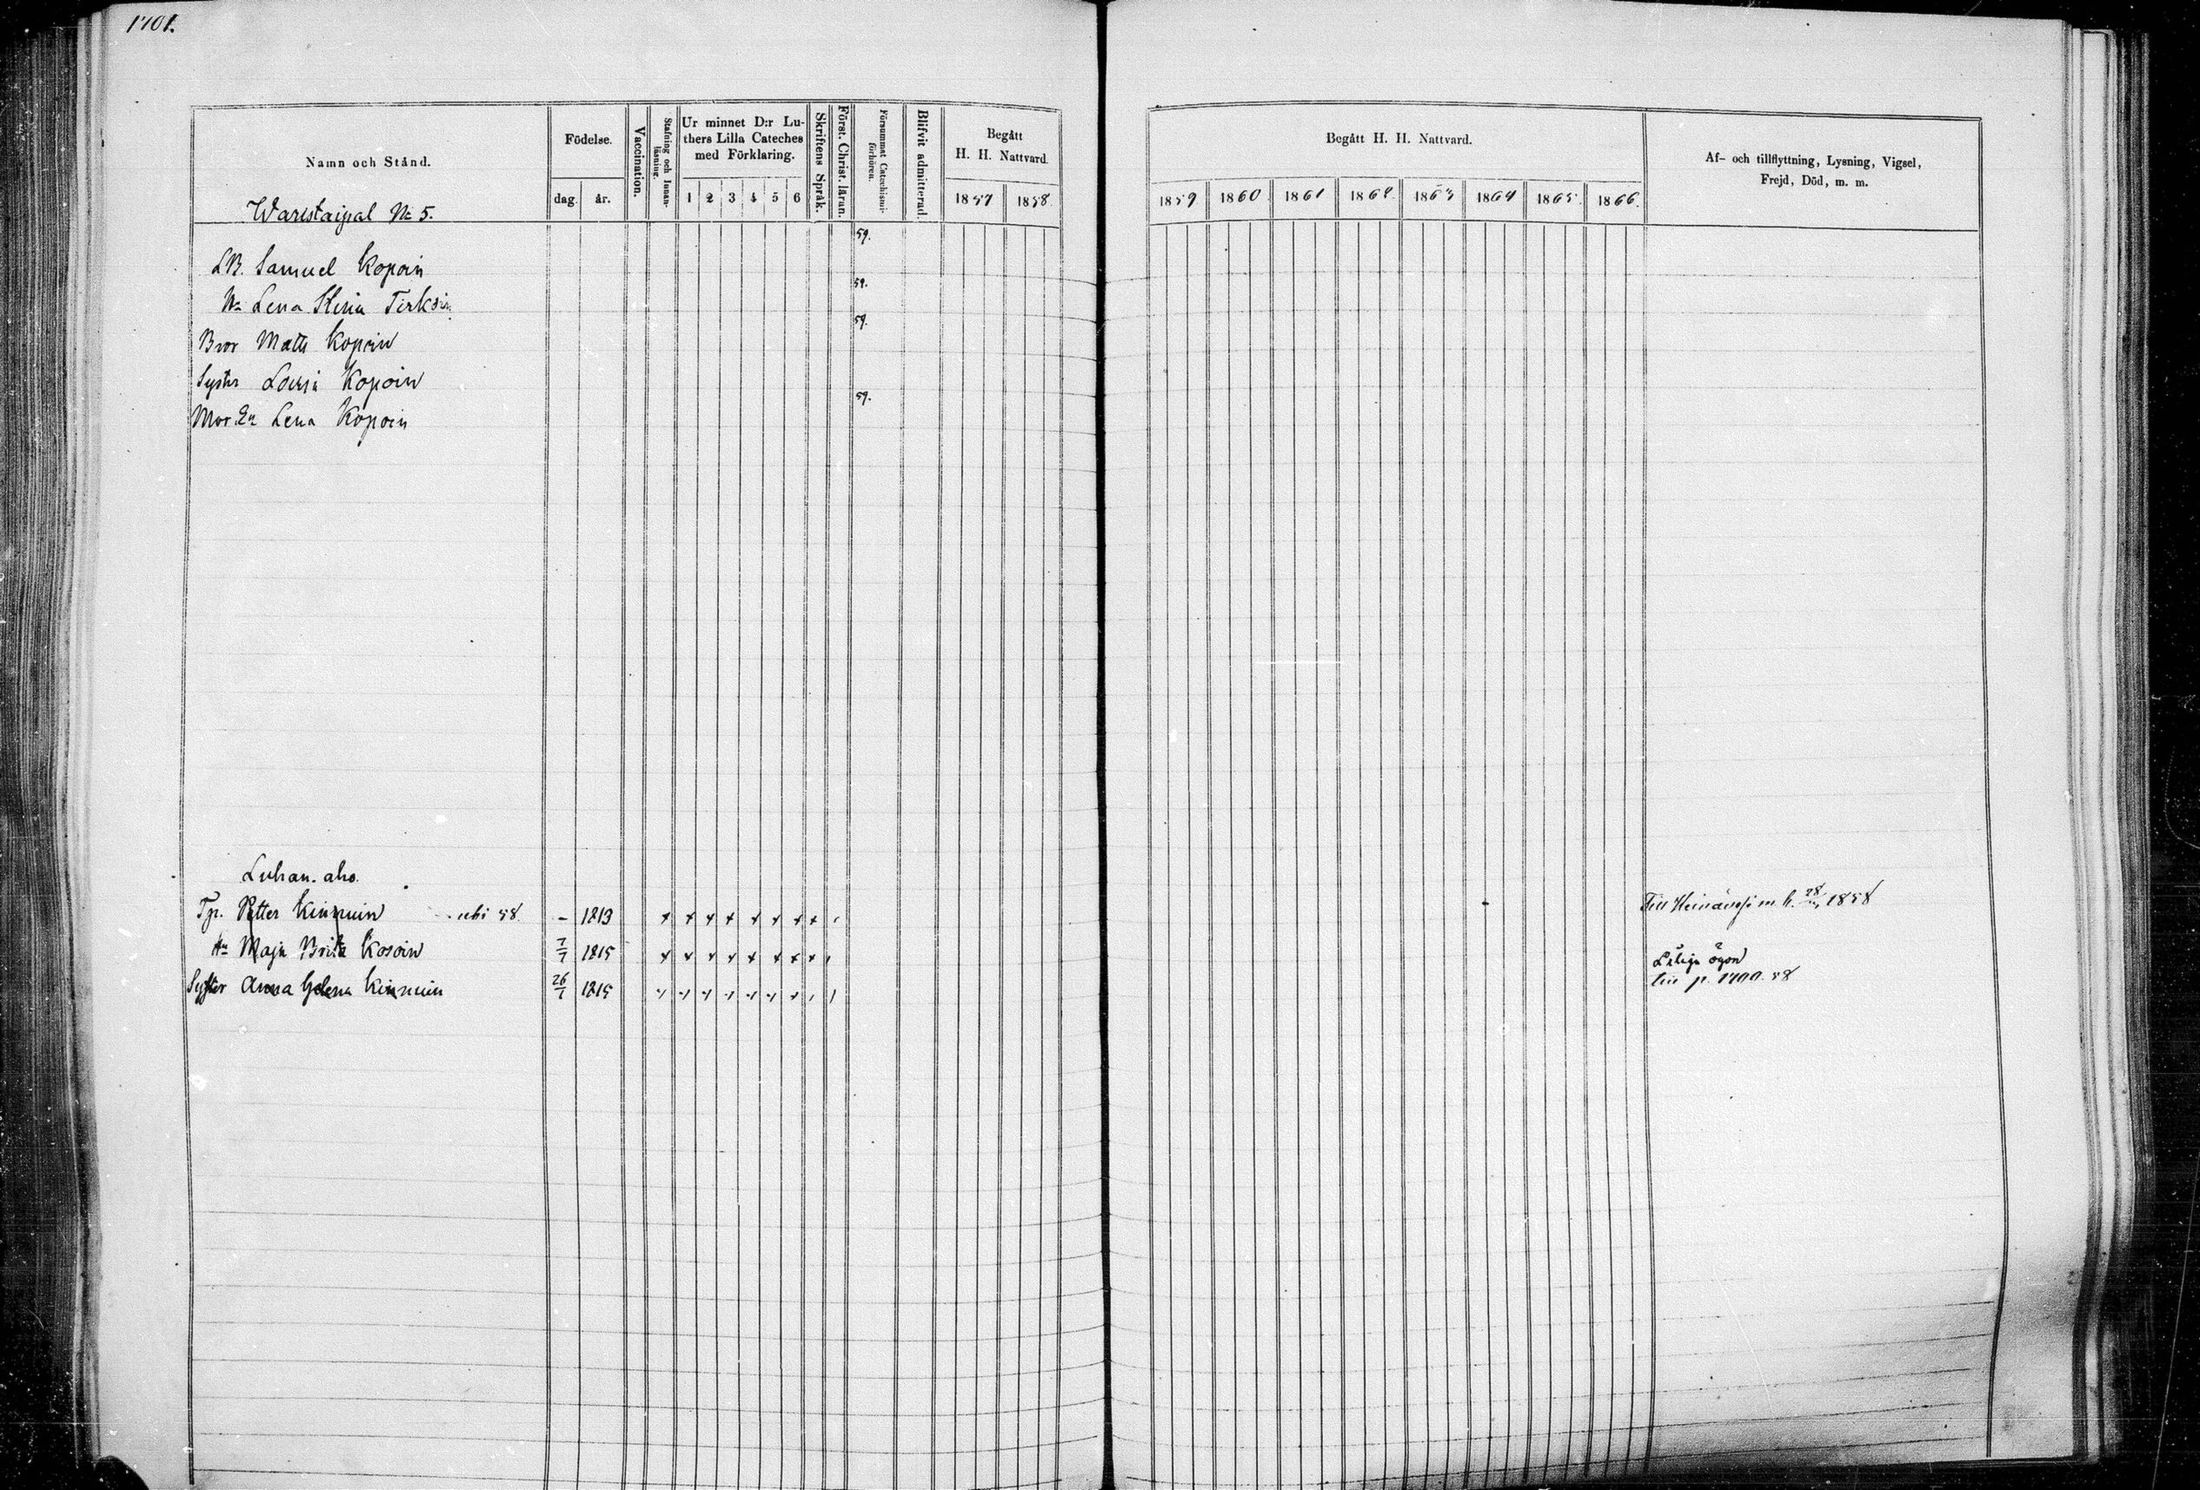 1701.
Namn och Stånd.
Födelse.
dag. år.
Vaccination.
Stafning och Innan-
läsning.
Ur minnet D:r Lu-
thers Lilla Cateches
med Förklaring.
1 2 3 4 5 6
Skriftens Språk.
Först. Christ. läran.
Försummat Catechismi-
förhören.
Blifvit admitterad.
Begått
H. H. Nattvard.
1857 1858.
Begått H. H. Nattvard.
1859 1860 1861 1862 1863 1864 1865 1866
Af- och tillflyttning, Lysning, Vigsel,
Frejd, Död, m. m.
Waristaipal No 5.
59.
LB. Samuel Kopoin
59.
Lena Tirkoin
59.
Bror Matts Kopoin
Syster Lovisa Kopoin
59.
Mor Lena Kopoin
Luhan-aho.
Tp. Petter Kinnuin ubi 58. – 1813 1858
Hu Maja Brita Kosoin 7/7 1815 ögon
Syster Anna Helena Kinnuin 26/1 1815 till p. 1700. 58